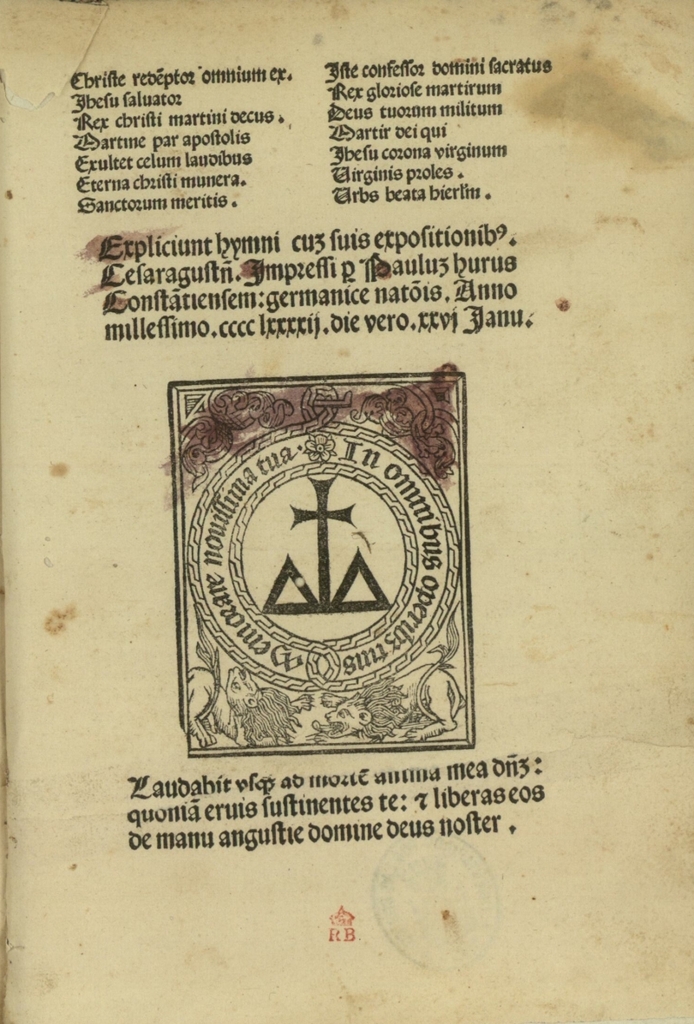 Christe redẽptor omnium ex.
Jhesu saluator
Rex christi martini decus.
Martine par apostolis
Exultet celum laudibus
Eterna christi munera.
Sanctorum meritis.
Iste confessor domini sacratus
Rex gloriose martirum
Deus tuorum militum
Martir dei qui
Jhesu corona virginum
Uirginis proles.
Urbs beata hierl'm.
Expliciunt hymni cuʒ suis expositionibꝰ.
Cesaraugustñ. Impressi ꝑ Pauluʒ hurus
Constãtiensem: germanice natõis. Anno
millessimo.cccc lxxxxij. die vero. xxvj Janu.
In omnibus operibꝫ tuis
Memorare nouissima tua.
Laudabit vsqꝫ ad mortẽ anima mea dñʒ:
quoniã eruis sustinentes te: ⁊ liberas eos
de manu angustie domine deus noster.
RB